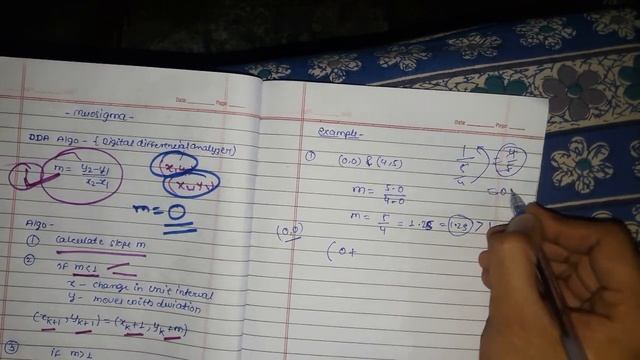 Date Page
- Muosigma -
DDA Algo - { Digital differential analyzer)
m = y2-y1
x2-x1
m = 0
Algo -
① calculate slope m
② if m<1
x - change in unit interval
y - moves with deviation
(xk+1, yk+1) = (xk+1, yk+m)
③ if m>1
Date Page
example -
① (0,0) & (4,5)
m = 5-0
4-0
m = 5/4 = 1.25 = 1.25 > 1
(0,0)
(0+
1
5
4
= 4
5